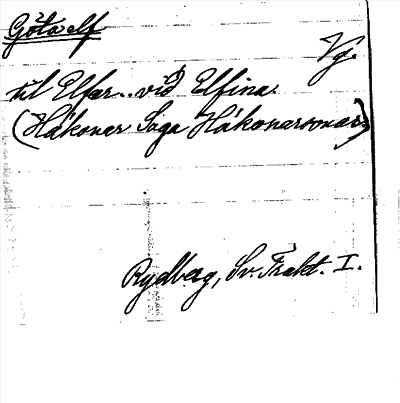 Göta elf
Vg.
til Elfar.. við Elfina
(Hákonar Saga Hákonarsonar)
Rydberg, Sv. Trakt. I.